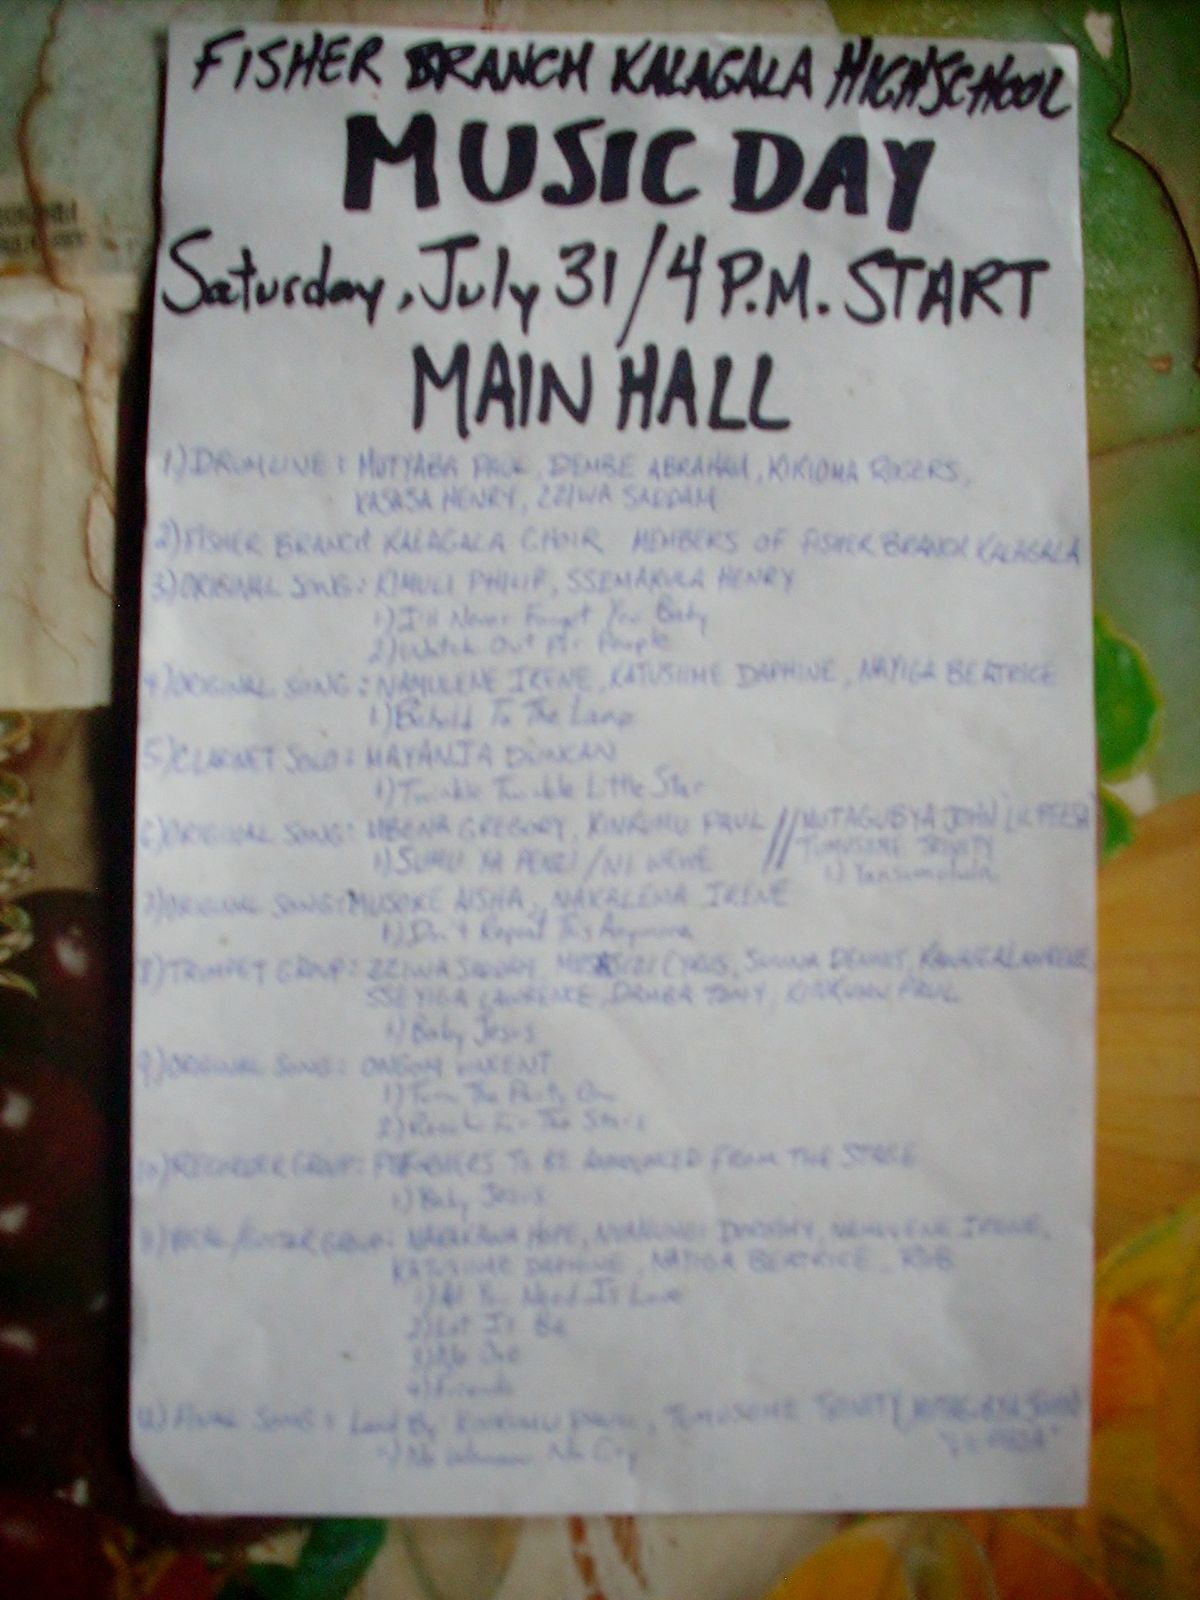 FISHER BRANCH KALAGALA HIGH SCHOOL
MUSIC DAY
Saturday, July 31/4 P.M. START
MAIN HALL
1) DRUMLINE: MUTYABA PAUL, DEMBE ABRAHAM, ROGERS,
KASASA HENRY, ZZIWA SADDAM
2) FISHER BRANCH KALAGALA CHOIR MEMBERS OF FISHER BRANCH KALAGALA
3) ORIGINAL SONG: KIMULI PHILIP, SSEMAKULA HENRY
1) I'll Never Forget You Baby
2) Watch Out For People
4) ORIGINAL SONG: NAMULENE IRENE, KATUSIIME DAPHINE, NAYIGA BEATRICE
1) To The Lamp
5) CLARINET SOLO: MAYANJA DUNCAN
1) Twinkle Twinkle Little Star
6) ORIGINAL SONG: GREGORY, KINKUMU PAUL // MUTAGUBYA JOHN
1) SUMU YA PENZI / NI WEWE
TUMUSIIME TRINITY
7) ORIGINAL SONG: MUSOKE AISHA, IRENE
1) Don't Repeat This Anymore
8) TRUMPET GROUP: ZZIWA DENNIS, LAWRENCE,
SSEYIGA LAWRENCE, DAMBA TONY, KINKUMU PAUL
1) Baby Jesus
9) ORIGINAL SONG: ONGOM VINCENT
1) Turn The Party On
2) Reach For The Stars
10) RECORDER GROUP: TO BE ANNOUNCED FROM THE STAGE
1) Baby Jesus
11) VOCAL/GUITAR GROUP: HOPE, DOROTHY, NAMULENE IRENE,
KATUSIIME DAPHINE, NAYIGA BEATRICE, ROB
1) All You Need Is Love
2) Let It Be
3) No One
4) Friends
12) FINAL SONG: Lead By KINKUMU PAUL, TUMUSIIME TRINITY, MUTAGUBYA JOHN
1) No Woman No Cry